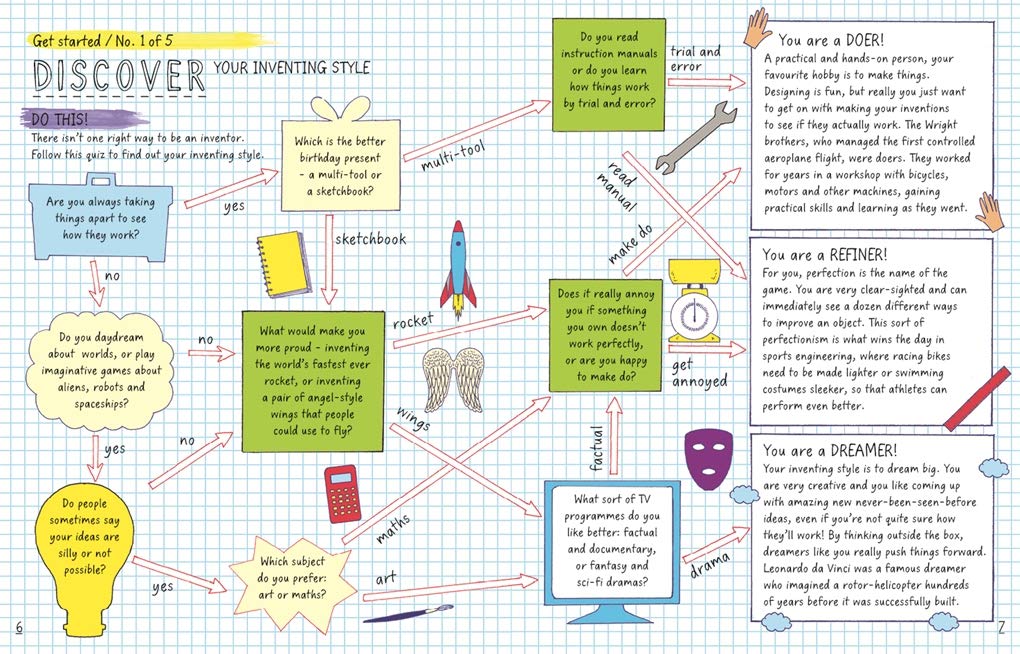 Get started / No. 1 of 5
DISCOVER YOUR INVENTING STYLE
DO THIS!
There isn't one right way to be an inventor.
Follow this quiz to find out your inventing style.
Are you always taking
things apart to see
how they work?
yes
no
Which is the better
birthday present
- a multi-tool or
a sketchbook?
multi-tool
sketchbook
Do you read
instruction manuals
or do you learn
how things work
by trial and error?
trial and
error
read
manual
Do you daydream
about worlds, or play
imaginative games about
aliens, robots and
spaceships?
no
yes
What would make you
more proud - inventing
the world's fastest ever
rocket, or inventing
a pair of angel-style
wings that people
could use to fly?
rocket
wings
Does it really annoy
you if something
you own doesn't
work perfectly,
or are you happy
to make do?
make do
get
annoyed
Do people
sometimes say
your ideas are
silly or not
possible?
no
yes
Which subject
do you prefer:
art or maths?
maths
art
What sort of TV
programmes do you
like better: factual
and documentary,
or fantasy and
sci-fi dramas?
factual
drama
You are a DOER!
A practical and hands-on person, your
favourite hobby is to make things.
Designing is fun, but really you just want
to get on with making your inventions
to see if they actually work. The Wright
brothers, who managed the first controlled
aeroplane flight, were doers. They worked
for years in a workshop with bicycles,
motors and other machines, gaining
practical skills and learning as they went.
You are a REFINER!
For you, perfection is the name of the
game. You are very clear-sighted and can
immediately see a dozen different ways
to improve an object. This sort of
perfectionism is what wins the day in
sports engineering, where racing bikes
need to be made lighter or swimming
costumes sleeker, so that athletes can
perform even better.
You are a DREAMER!
Your inventing style is to dream big. You
are very creative and you like coming up
with amazing new never-been-seen-before
ideas, even if you're not quite sure how
they'll work! By thinking outside the box,
dreamers like you really push things forward.
Leonardo da Vinci was a famous dreamer
who imagined a rotor-helicopter hundreds
of years before it was successfully built.
6
7